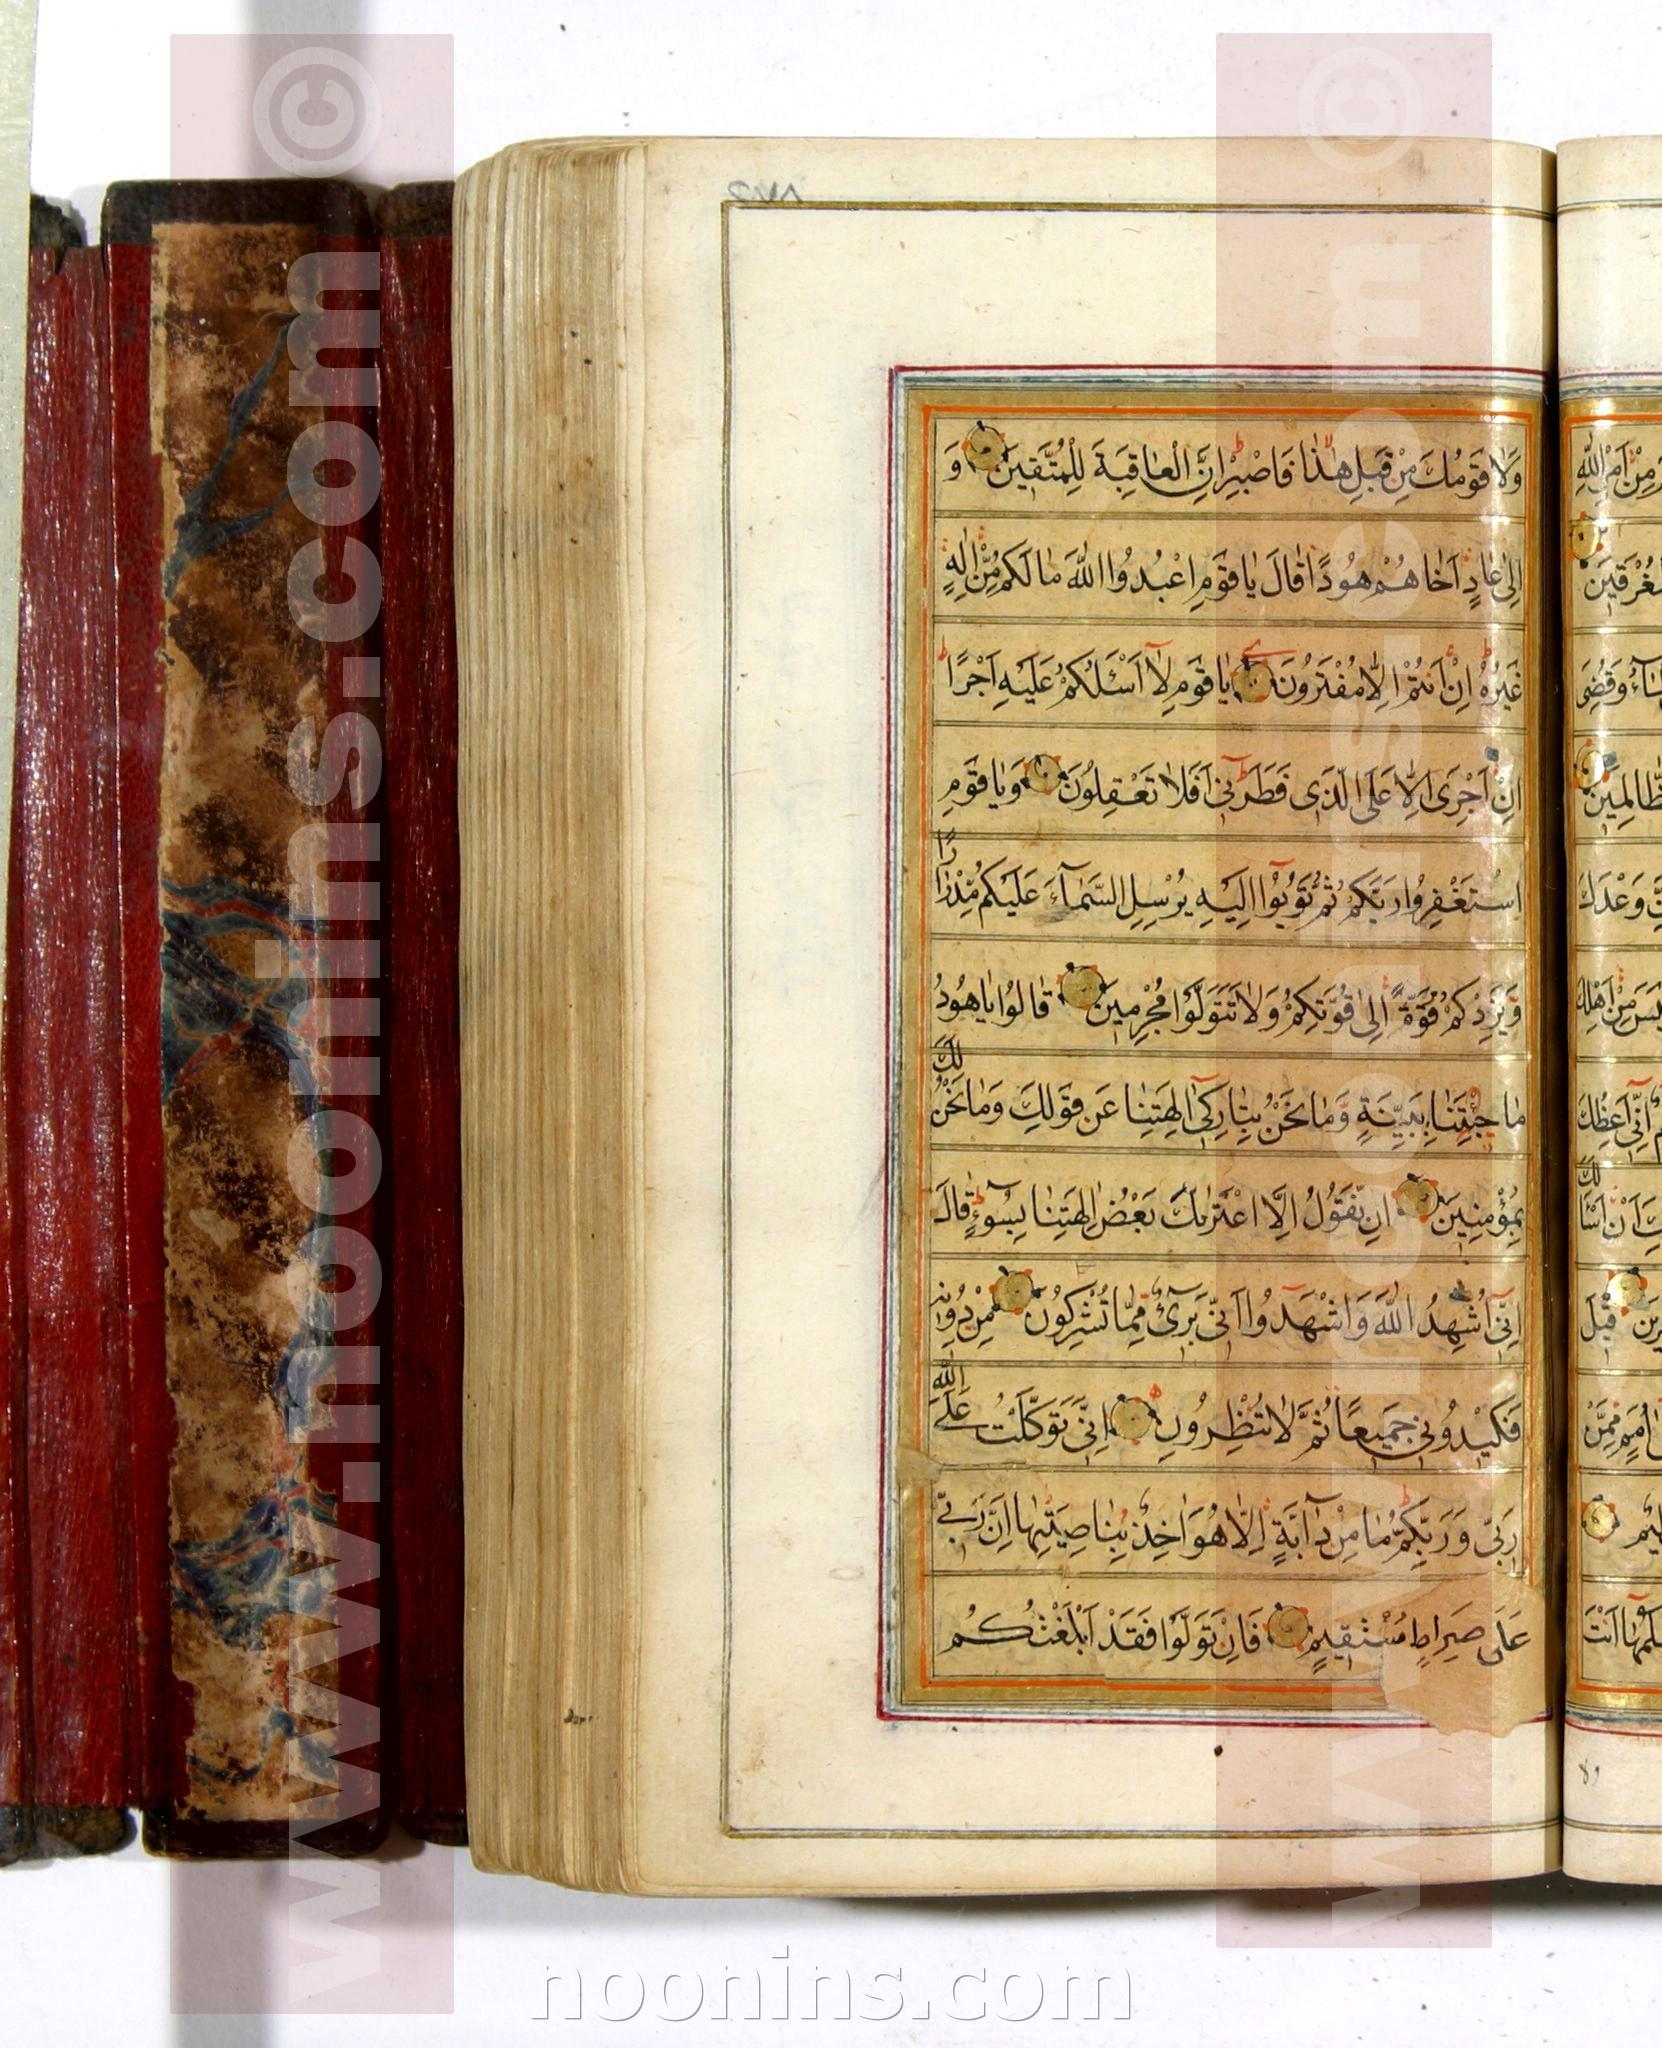 وَلا قَوْمُكَ مِنْ قَبْلِ هٰذا فَاصْبِرْ اِنَّ الْعاقِبَةَ لِلْمُتَّقِينَ وَ
اِلىٰ عادٍ اَخاهُمْ هُودًا قالَ ياقَوْمِ اعْبُدُوا اللّٰهَ مالَكُمْ مِنْ اِلٰهٍ
غَيْرُهُ اِنْ اَنْتُمْ اِلّا مُفْتَرُونَ ياقَوْمِ لا اَسْئَلُكُمْ عَلَيْهِ اَجْرًا
اِنْ اَجْرِىَ اِلّا عَلَى الَّذِى فَطَرَنِى اَفَلا تَعْقِلُونَ وَياقَوْمِ
اسْتَغْفِرُوا رَبَّكُمْ ثُمَّ تُوبُوا اِلَيْهِ يُرْسِلِ السَّمآءَ عَلَيْكُمْ مِدْرارًا
وَيَزِدْكُمْ قُوَّةً اِلىٰ قُوَّتِكُمْ وَلا تَتَوَلَّوْا مُجْرِمِينَ قالُوا ياهُودُ
ما جِئْتَنا بِبَيِّنَةٍ وَما نَحْنُ بِتارِكِى اٰلِهَتِنا عَنْ قَوْلِكَ وَما نَحْنُ لَكَ
بِمُؤْمِنِينَ اِنْ نَقُولُ اِلَّا اعْتَرٰىكَ بَعْضُ اٰلِهَتِنا بِسُوٓءٍ قالَ
اِنِّى اُشْهِدُ اللّٰهَ وَاشْهَدُوا اَنِّى بَرِىٓءٌ مِمّا تُشْرِكُونَ مِنْ دُونِهِ
فَكِيدُونِى جَمِيعًا ثُمَّ لا تُنْظِرُونِ اِنِّى تَوَكَّلْتُ عَلَى اللّٰهِ
رَبِّى وَرَبِّكُمْ ما مِنْ دآبَّةٍ اِلّا هُوَ اٰخِذٌ بِناصِيَتِها اِنَّ رَبِّى
عَلىٰ صِراطٍ مُسْتَقِيمٍ فَاِنْ تَوَلَّوْا فَقَدْ اَبْلَغْتُكُمْ
www.noonins.com ©
www.noonins.com ©
noonins.com